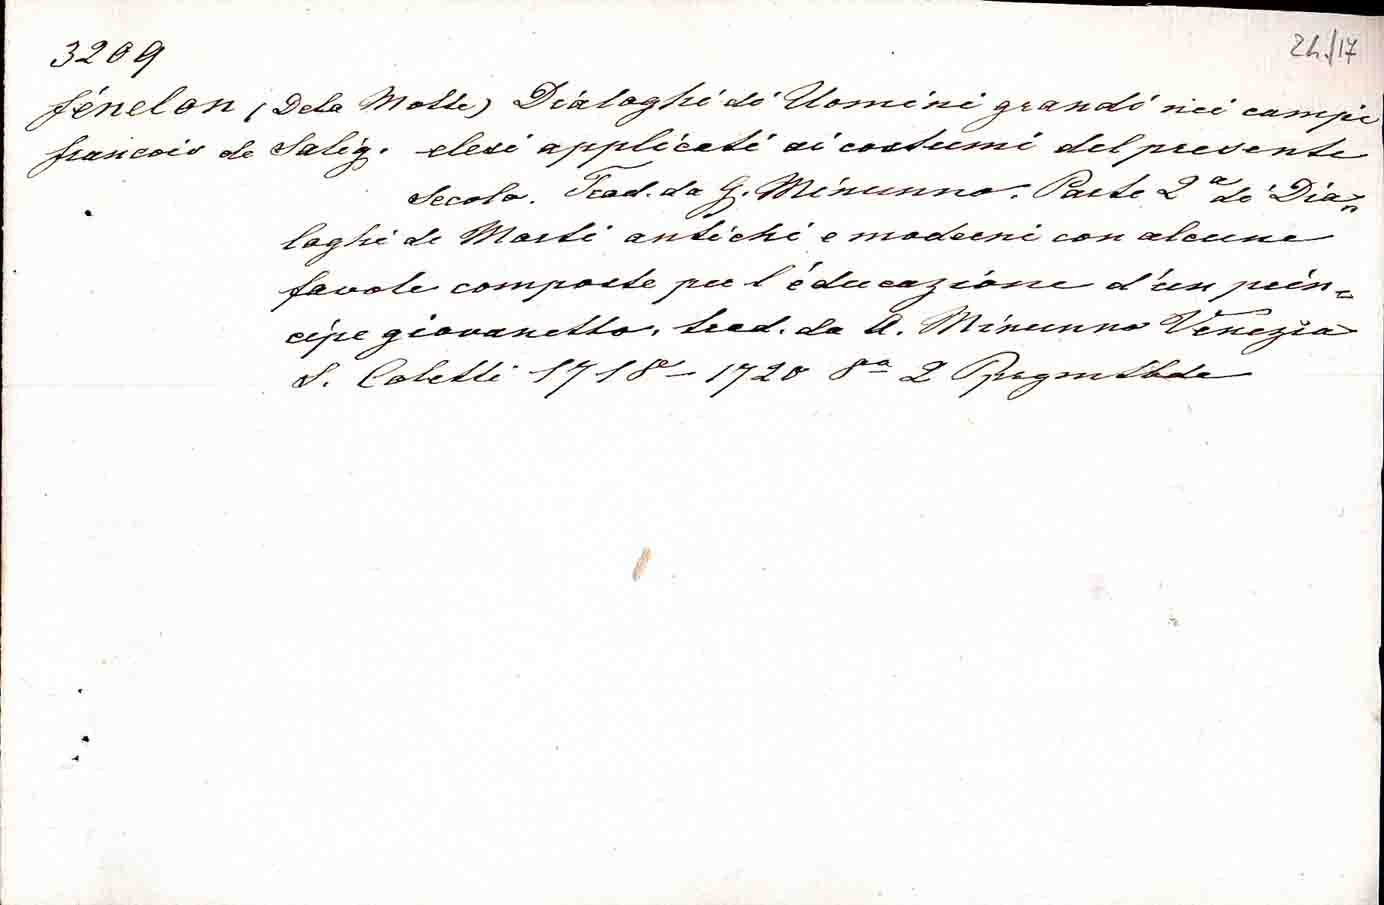 3209
24./17
Fénelon (Dela Motte) Dialoghi di Uomini grandi nei campi
francois de Salig. elesi applicati ai costumi del presente
Secolo. Trad. da G. Minunno. Parte 2a di Dia=
loghi de Morti antichi e moderni con alcune
favole composte per l'éducazione d'un prin=
cipe giovanetto. trad. da A. Minunno Venezia
S. Coletti 1718 - 1720 8a 2